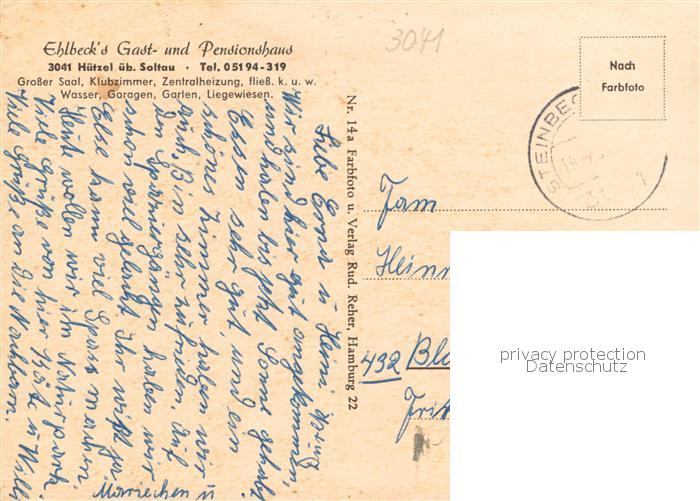 Ehlbeck's Gast- und Pensionshaus
3041 Hützel üb. Soltau • Tel. 05194-319
Großer Saal, Klubzimmer, Zentralheizung, fließ. k. u. w.
Wasser, Garagen, Garten, Liegewiesen.
3041
Nach
Farbfoto
STEINBE
Nr. 14a Farbfoto u. Verlag Rud. Reher, Hamburg 22
Liebe Erna u Heini
Wir sind hier gut angekommen,
und haben bis jetzt Sonne gehabt
Essen sehr gut und ein
schönes Zimmer haben wir
auch. Bin sehr zufrieden. Auf
den Spaziergängen haben wir
schon viel gelacht Ihr wißt ja
Else kann viel Spass machen.
Heute wollen wir im Naturpark.
Viele Grüße von hier Käte u Willi
Viele Grüße an die Nachbarn.
Mariechen u
Fam
Heinr
432 Bla
Frit
privacy protection
Datenschutz